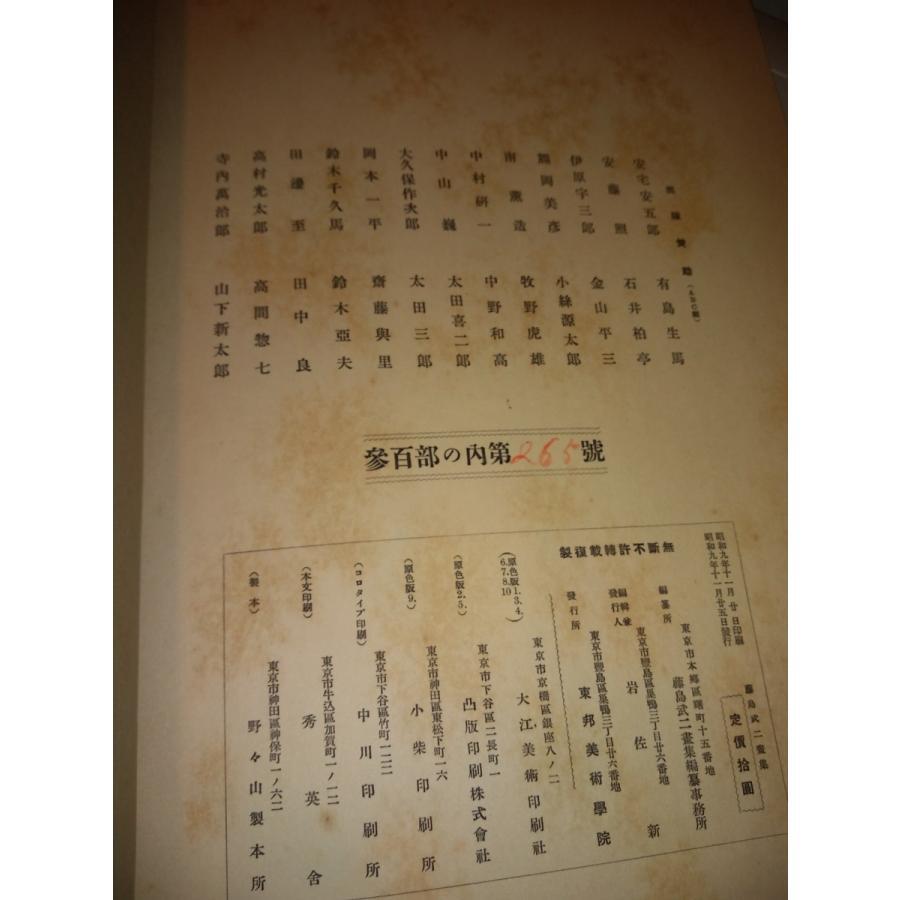 無斷不許轉載復製
安宅安五郎
安藤照
伊原宇三郎
熊岡美彦
南薫造
中村研一
中山巍
大久保作次郎
岡本一平
鈴木千久馬
田邊至
高村光太郎
寺内萬治郎
有島生馬
石井柏亭
金山平三
小絲源太郎
牧野虎雄
中野和高
太田喜二郎
太田三郎
齋藤與里
鈴木亞夫
田中良
高間惣七
山下新太郎
參百部の內第265號
藤島武二畫集
定價拾圓
昭和九年十一月廿日印刷
昭和九年十一月廿五日發行
編纂所
東京市本鄕區曙町十五番地
藤島武二畫集編纂事務所
編輯並發行人
東京市豐島區巢鴨三丁目廿六番地
岩佐新
發行所
東京市豐島區巢鴨三丁目廿六番地
東邦美術學院
(原色版1.3.4.6.7.8.10)
東京市京橋區銀座八ノ二
大江美術印刷社
(原色版2.5.)
東京市下谷區二長町一
凸版印刷株式會社
(原色版9.)
東京市神田區東松下町一六
小柴印刷所
(コロタイプ印刷)
東京市下谷區竹町一二二
中川印刷所
(本文印刷)
東京市牛込區加賀町一ノ一二
秀英舍
(製本)
東京市神田區神保町一ノ六二
野々山製本所